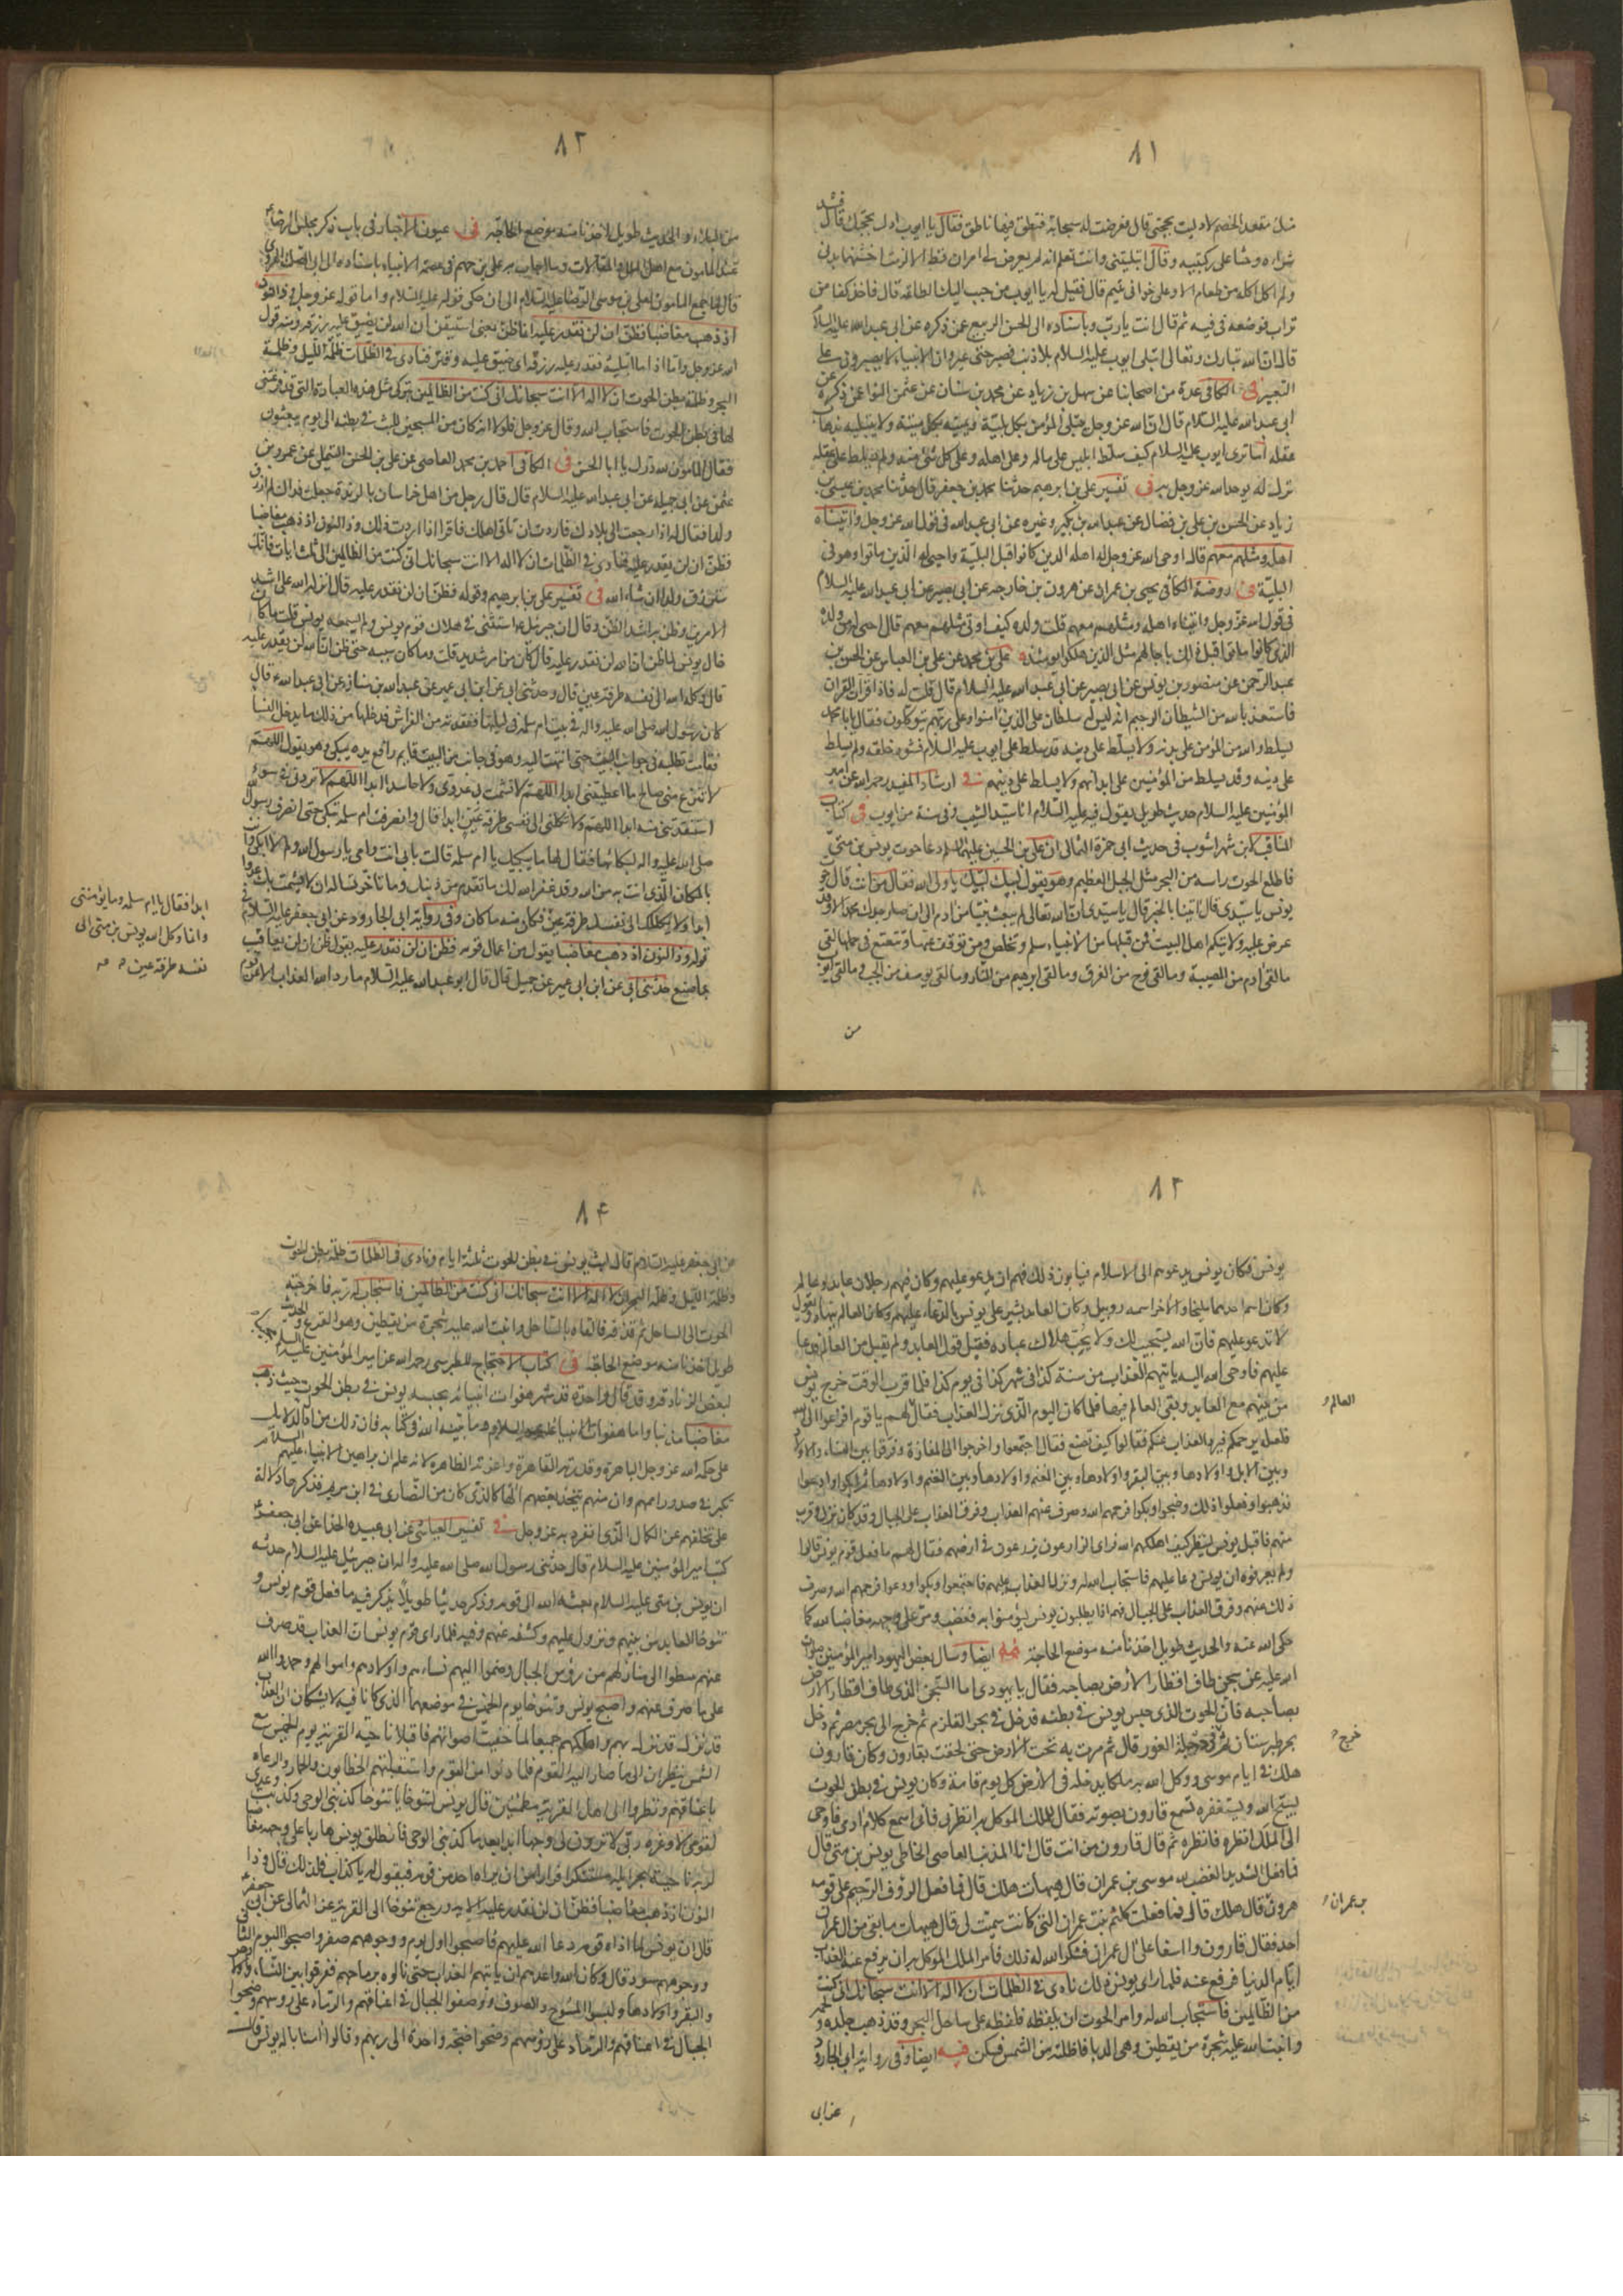 ٨١
منك مقعد الخصم لادليت بحجتى قال فعرضت له سحابة فنطق فيها ناطق فقال يا ايوب ادل بحجتك قال فشد
مئزره وجثا على ركبتيه وقال ابتليتنى وانت تعلم انه لم يعرض لى امران قط الا لزمت اخشنهما بدنى
ولم اكل اكلة من طعام الا وعلى خوانى يتيم قال فقيل له يا ايوب من حبب اليك الطاعة قال فاخذ كفا من
تراب فوضعه فى فيه ثم قال انت يا رب وباسناده الى الحسن الربيع عمن ذكره عن ابى عبد الله عليه السلام
قال ان الله تبارك وتعالى ابتلى ايوب عليه السلام بلا ذنب فصبر حتى عير وان الانبياء لا يصبرون على
التعيير فى الكافى عدة من اصحابنا عن سهل بن زياد عن محمد بن سنان عن عثمن النوا عمن ذكره عن
ابى عبد الله عليه السلام قال ان الله عز وجل يبتلى المؤمن بكل بلية ويميته بكل ميتة ولا يبتليه بذهاب
عقله اما ترى ايوب عليه السلام كيف سلط ابليس على ماله وعلى اهله وعلى كل شئ منه ولم يسلط على عقله
ترك له يوحد الله عز وجل به فى تفسير على بن ابرهيم حدثنا محمد بن جعفر قال حدثنا محمد بن عيسى بن
زياد عن الحسن بن على بن فضال عن عبد الله بن بكير وغيره عن ابى عبد الله فى قول الله عز وجل واتيناه
اهله ومثلهم معهم قال احيى الله عز وجل له اهله الذين كانوا قبل البلية واحيى له الذين ماتوا وهو فى
البلية فى روضة الكافى يحيى بن عمران عن هرون بن خارجه عن ابى بصير عن ابى عبد الله عليه السلام
فى قول الله عز وجل واتيناه اهله ومثلهم معهم قلت ولده كيف اوتى مثلهم معهم قال احيى له من ولده
الذين كانوا ماتوا قبل ذلك باجالهم مثل الذين هلكوا يومئذ على بن محمد عن على بن العباس عن الحسن بن
عبد الرحمن عن منصور بن يونس عن ابى بصير عن ابى عبد الله عليه السلام قال قلت له فاذا قرات القران
فاستعذ بالله من الشيطان الرجيم انه ليس له سلطان على الذين امنوا وعلى ربهم يتوكلون فقال يابا محمد
يسلط والله من المؤمن على بدنه ولا يسلط على دينه قد سلط على ايوب عليه السلام فشوه خلقه ولم يسلط
على دينه وقد يسلط من المؤمنين على ابدانهم ولا يسلط على دينهم فى ارشاد المفيد رحمه الله عن امير
المؤمنين عليه السلام حديث طويل يقول فيه عليه السلام انا سيد الشيب وفى سنة من ايوب فى كتاب
المناقب لابن شهراشوب فى حديث ابى حمزة الثمالى ان على بن الحسين عليهما السلام دعا حوت يونس بن متى
فاطلع الحوت راسه من البحر مثل الجبل العظيم وهو يقول لبيك لبيك يا ولى الله فقال من انت قال حوت
يونس يا سيدى قال انبئنا بالخبر قال يا سيدى ان الله تعالى لم يبعث نبيا من ادم الى ان صار جدك محمد الا وقد
عرض عليه ولايتكم اهل البيت فمن قبلها من الانبياء سلم وتخلص ومن توقف عنها وتتعتع فى حملها لقى
ما لقى ادم من المصيبة وما لقى نوح من الغرق وما لقى ابرهيم من النار وما لقى يوسف من الجب وما لقى ايوب
من
٨٢
من البلاء والحديث طويل اخذنا منه موضع الحاجة فى عيون الاخبار فى باب ذكر مجلس الرضا
عند المامون مع اهل الملل والمقالات وما اجاب به على بن جهم فى عصمة الانبياء باسناده الى ابى الصلت الهروى
قال لما جمع المامون لعلى بن موسى الرضا عليه السلام الى ان حكى قوله عليه السلام واما قوله عز وجل وذا النون
اذ ذهب مغاضبا فظن ان لن نقدر عليه انما ظن بمعنى استيقن ان الله لن يضيق عليه رزقه ومنه قول
الله عز وجل واما اذا ما ابتليه فقدر عليه رزقه اى ضيق عليه وقتر فنادى فى الظلمات ظلمة الليل وظلمة
البحر وظلمة بطن الحوت ان لا اله الا انت سبحانك انى كنت من الظالمين بتركى مثل هذه العبادة التى قد فرغتنى
لها فى بطن الحوت فاستجاب الله وقال عز وجل فلولا انه كان من المسبحين للبث فى بطنه الى يوم يبعثون
فقال المامون لله درك يا ابا الحسن فى الكافى احمد بن محمد العاصمى عن على بن الحسن التيملى عن عمرو بن
عثمن عن ابى جميله عن ابى عبد الله عليه السلام قال قال رجل من اهل خراسان بالربذة جعلت فداك لم ارزق
ولدا فقال له اذا رجعت الى بلادك فاردت ان تاتى اهلك فاقرا اذا اردت ذلك وذا النون اذ ذهب مغاضبا
فظن ان لن نقدر عليه فنادى فى الظلمات ان لا اله الا انت سبحانك انى كنت من الظالمين الى ثلث ايات فانك
سترزق ولدا ان شاء الله فى تفسير على بن ابرهيم وقوله فظن ان لن نقدر عليه قال انزله الله على اشد
الامرين وظن به اشد الظن وقال ان جبرئيل استثنى فى هلاك قوم يونس ولم يسمعه يونس قلت ما كان
حال يونس لما ظن ان الله لن نقدر عليه قال كان من امر شديد قلت وما كان سببه حتى ظن ان الله لن يقدر عليه
قال وكله الله الى نفسه طرفة عين قال وحدثنى ابى عن ابن ابى عمير عن عبد الله بن سنان عن ابى عبد الله قال
كان رسول الله صلى الله عليه واله فى بيت ام سلمة فى ليلتها ففقدته من الفراش فدخلها من ذلك ما يدخل النساء
فقامت تطلبه فى جوانب البيت حتى انتهت اليه وهو فى جانب من البيت قايم رافع يديه يبكى وهو يقول اللهم
لا تنزع منى صالح ما اعطيتنى ابدا اللهم لا تشمت بى عدوى ولا حاسدا ابدا اللهم لا تردنى فى سوء
استنقذتنى منه ابدا اللهم ولا تكلنى الى نفسى طرفة عين ابدا قال وانصرفت ام سلمه تبكى حتى انصرف رسول
صلى الله عليه واله لبكائها فقال لها ما يبكيك يا ام سلمه قالت بابى انت وامى يا رسول الله ولم لا ابكى وانت
بالمكان الذى انت به من الله وقد غفر الله لك ما تقدم من ذنبك وما تاخر تساله ان لا يشمت بك عدوا
ابدا ولا يكلك الى نفسك طرفة عين فكان منه ما كان وفى رواية ابى الجارود عن ابى جعفر عليه السلام فى
قوله وذا النون اذ ذهب مغاضبا يقول من اعمال قومه فظن ان لن نقدر عليه يقول ظن ان لن يعاقب
بما صنع حدثنى ابى عن ابن ابى عمير عن جميل قال قال ابو عبد الله عليه السلام ما رد الله العذاب الا عن قوم
ابدا فقال يا ام سلمه وما يؤمننى
وانما وكل الله يونس بن متى الى
نفسه طرفة عين
٨٣
يونس فكان يونس يدعوهم الى الاسلام فيابون ذلك فهم ان يدعو عليهم وكان فيهم رجلان عابد وعالم
وكان اسم احدهما مليخا والاخر اسمه روبيل وكان العابد يشير على يونس بالدعاء عليهم وكان العالم ينهاه ويقول
لا تدعو عليهم فان الله يستجيب لك ولا يحب هلاك عباده فقبل قول العابد ولم يقبل من العالم فدعا
عليهم فاوحى الله اليه ياتيهم العذاب من سنة كذا فى شهر كذا فى يوم كذا فلما قرب الوقت خرج يونس
من بينهم مع العابد وبقى العالم فيها فلما كان اليوم الذى نزل العذاب فقال لهم يا قوم افزعوا الى الله
فلعله يرحمكم فيرد العذاب عنكم فقالوا كيف نصنع فقال اجتمعوا واخرجوا الى المفازة وفرقوا بين النساء والاولاد
وبين الابل واولادها وبين البقر واولادها وبين الغنم واولادها ثم ابكوا وادعوا
فذهبوا وفعلوا ذلك وضجوا وبكوا فرحمهم الله وصرف عنهم العذاب وفرق العذاب على الجبال وقد كان نزل وقرب
منهم فاقبل يونس لينظر كيف اهلكهم الله فراى الزارعون يزرعون فى ارضهم فقال لهم ما فعل قوم يونس قالوا
ولم يعرفوه ان يونس دعا عليهم فاستجاب الله له ونزل العذاب عليهم فاجتمعوا وبكوا ودعوا فرحمهم الله وصرف
ذلك عنهم وفرق العذاب على الجبال فهم اذا يطلبون يونس ليؤمنوا به فغضب ومر على وجهه مغاضبا لله كما
حكى الله عنه والحديث طويل اخذنا منه موضع الحاجة ايضا وسال بعض اليهود امير المؤمنين صلوات
الله عليه عن سجن طاف اقطار الارض بصاحبه فقال يا يهودى اما السجن الذى طاف اقطار الارض
بصاحبه فان الحوت الذى حبس يونس فى بطنه فدخل فى بحر القلزم ثم خرج الى بحر مصر ثم دخل
بحر طبرستان ثم فى دجلة الغور قال ثم مرت به تحت الارض حتى لحقت بقارون وكان قارون
هلك فى ايام موسى ووكل الله به ملكا يدخله فى الارض كل يوم قامة وكان يونس فى بطن الحوت
يسبح الله ويستغفره فسمع قارون بصوته فقال للملك الموكل به انظرنى فانى اسمع كلام ادمى فاوحى
الى الملك انظره فانظره ثم قال قارون من انت قال انا المذنب العاصى الخاطى يونس بن متى قال
فما فعل الشديد الغضب لله موسى بن عمران قال هيهات هلك قال فما فعل الرؤف الرحيم على قومه
هرون قال هلك قال فما فعلت كلثم بنت عمران التى كانت سميت لى قال هيهات ما بقى من ال عمران
احد فقال قارون وا اسفا على ال عمران فشكر الله له ذلك فامر الملك الموكل به ان يرفع عنه العذاب
ايام الدنيا فرفع عنه فلما راى يونس ذلك نادى فى الظلمات ان لا اله الا انت سبحانك انى كنت
من الظالمين فاستجاب الله له وامر الحوت ان يلفظه فلفظه على ساحل البحر وقد ذهب جلده ولحمه
وانبت الله عليه شجرة من يقطين وهى الدبا فاظلته من الشمس فسكن فيه ايضا وفى رواية ابى الجارود
العالم
خرج
بن عمران
عن ابى
٨۴
عن ابى جعفر عليه السلام قال لبث يونس فى بطن الحوت ثلثة ايام ونادى فى الظلمات ظلمة بطن الحوت
وظلمة الليل وظلمة البحر ان لا اله الا انت سبحانك انى كنت من الظالمين فاستجاب له ربه فاخرجه
الحوت الى الساحل ثم قذفه فالقاه بالساحل وانبت الله عليه شجرة من يقطين وهو القرع والحديث
طويل اخذنا منه موضع الحاجة فى كتاب الاحتجاج للطبرسى رحمه الله عن امير المؤمنين عليه السلام
لبعض الزنادقة وقد قال واجده قد شهر هفوات انبيائه بحبسه يونس فى بطن الحوت حيث ذهب
مغاضبا مذنبا واما هفوات الانبيا عليهم السلام وما بينه الله فى كتابه فان ذلك من ادل الدلايل
على حكمة الله عز وجل الباهرة وقدرته القاهرة وعزته الظاهرة لانه علم ان براهين الانبياء عليهم السلام
تكبر فى صدور اممهم وان منهم يتخذ بعضهم الها كالذى كان من النصارى فى ابن مريم فذكرها دلالة
على تخلفهم عن الكمال الذى انفرد به عز وجل فى تفسير العياشى عن ابى عبيده الحذا عن ابى جعفر
كتب امير المؤمنين عليه السلام قال حدثنى رسول الله صلى الله عليه واله ان جبرئيل عليه السلام حدثه
ان يونس بن متى عليه السلام بعثه الله الى قومه وذكر حديثا طويلا يذكر فيه ما فعل قوم يونس و
تنوخا العابد من بينهم ونزول عليهم وكشفه عنهم وفيه فلما راى قوم يونس ان العذاب قد صرف
عنهم هبطوا الى منازلهم من رؤس الجبال وضموا اليهم نساءهم واولادهم واموالهم وحمدوا الله
على ما صرف عنهم واصبح يونس وتنوخا يوم الخميس فى موضعهما الذى كانا فيه لا يشكان ان العذاب
قد نزل بهم واهلكهم جميعا لما خفيت اصواتهم فاقبلا ناحية القرية يوم الخميس مع
الشمس ينظران الى ما صار اليه القوم فلما دنوا من القوم واستقبلتهم الحطابون والحمارة والرعاه
باعناقهم ونظروا الى اهل القرية مطمئنين قال يونس لتنوخا يا تنوخا كذبنى الوحى وكذبت وعدى
لقومى لا وعزة ربى لا يرون لى وجها ابدا بعد ما كذبنى الوحى فانطلق يونس هاربا على وجهه مغاضبا
لربه ناحية بحر ايلة مستنكرا فرارا من ان يراه احد من قومه فيقول له يا كذاب فلذلك قال وذا
النون اذ ذهب مغاضبا فظن ان لن نقدر عليه الاية ورجع تنوخا الى القرية عن الثمالى عن ابى جعفر
قال ان يونس لما اذاه قومه دعا الله عليهم فاصبحوا اول يوم ووجوههم صفر واصبحوا اليوم الثانى
ووجوههم سود قال وكان الله واعدهم ان ياتيهم العذاب حتى نالوه برماحهم ففرقوا بين النساء واولادهن
والبقر واولادها ولبسوا المسوح والصوف ووضعوا الحبال فى اعناقهم والرماد على رؤسهم وضجوا
الحبال فى اعناقهم والرماد على رؤسهم وضجوا ضجة واحدة الى ربهم وقالوا امنا باله يونس قال